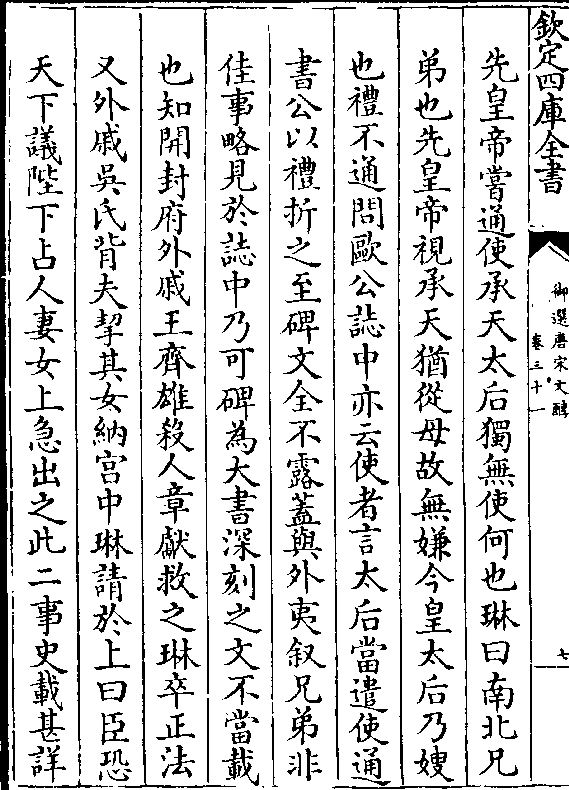 欽定四庫全書
御選唐宋文醇
卷三十一
七
先皇帝嘗通使承天太后獨無使何也琳曰南北兄
弟也先皇帝視承天猶從母故無嫌今皇太后乃嫂
也禮不通問歐公誌中亦云使者言太后當遣使通
書公以禮折之至碑文全不露蓋與外夷叙兄弟非
佳事略見於誌中乃可碑為大書深刻之文不當載
也知開封府外戚王齊雄殺人章獻救之琳卒正法
又外戚吳氏背夫挈其女納宫中琳請於上曰臣恐
天下議陛下占人妻女上急出之此二事史載甚詳